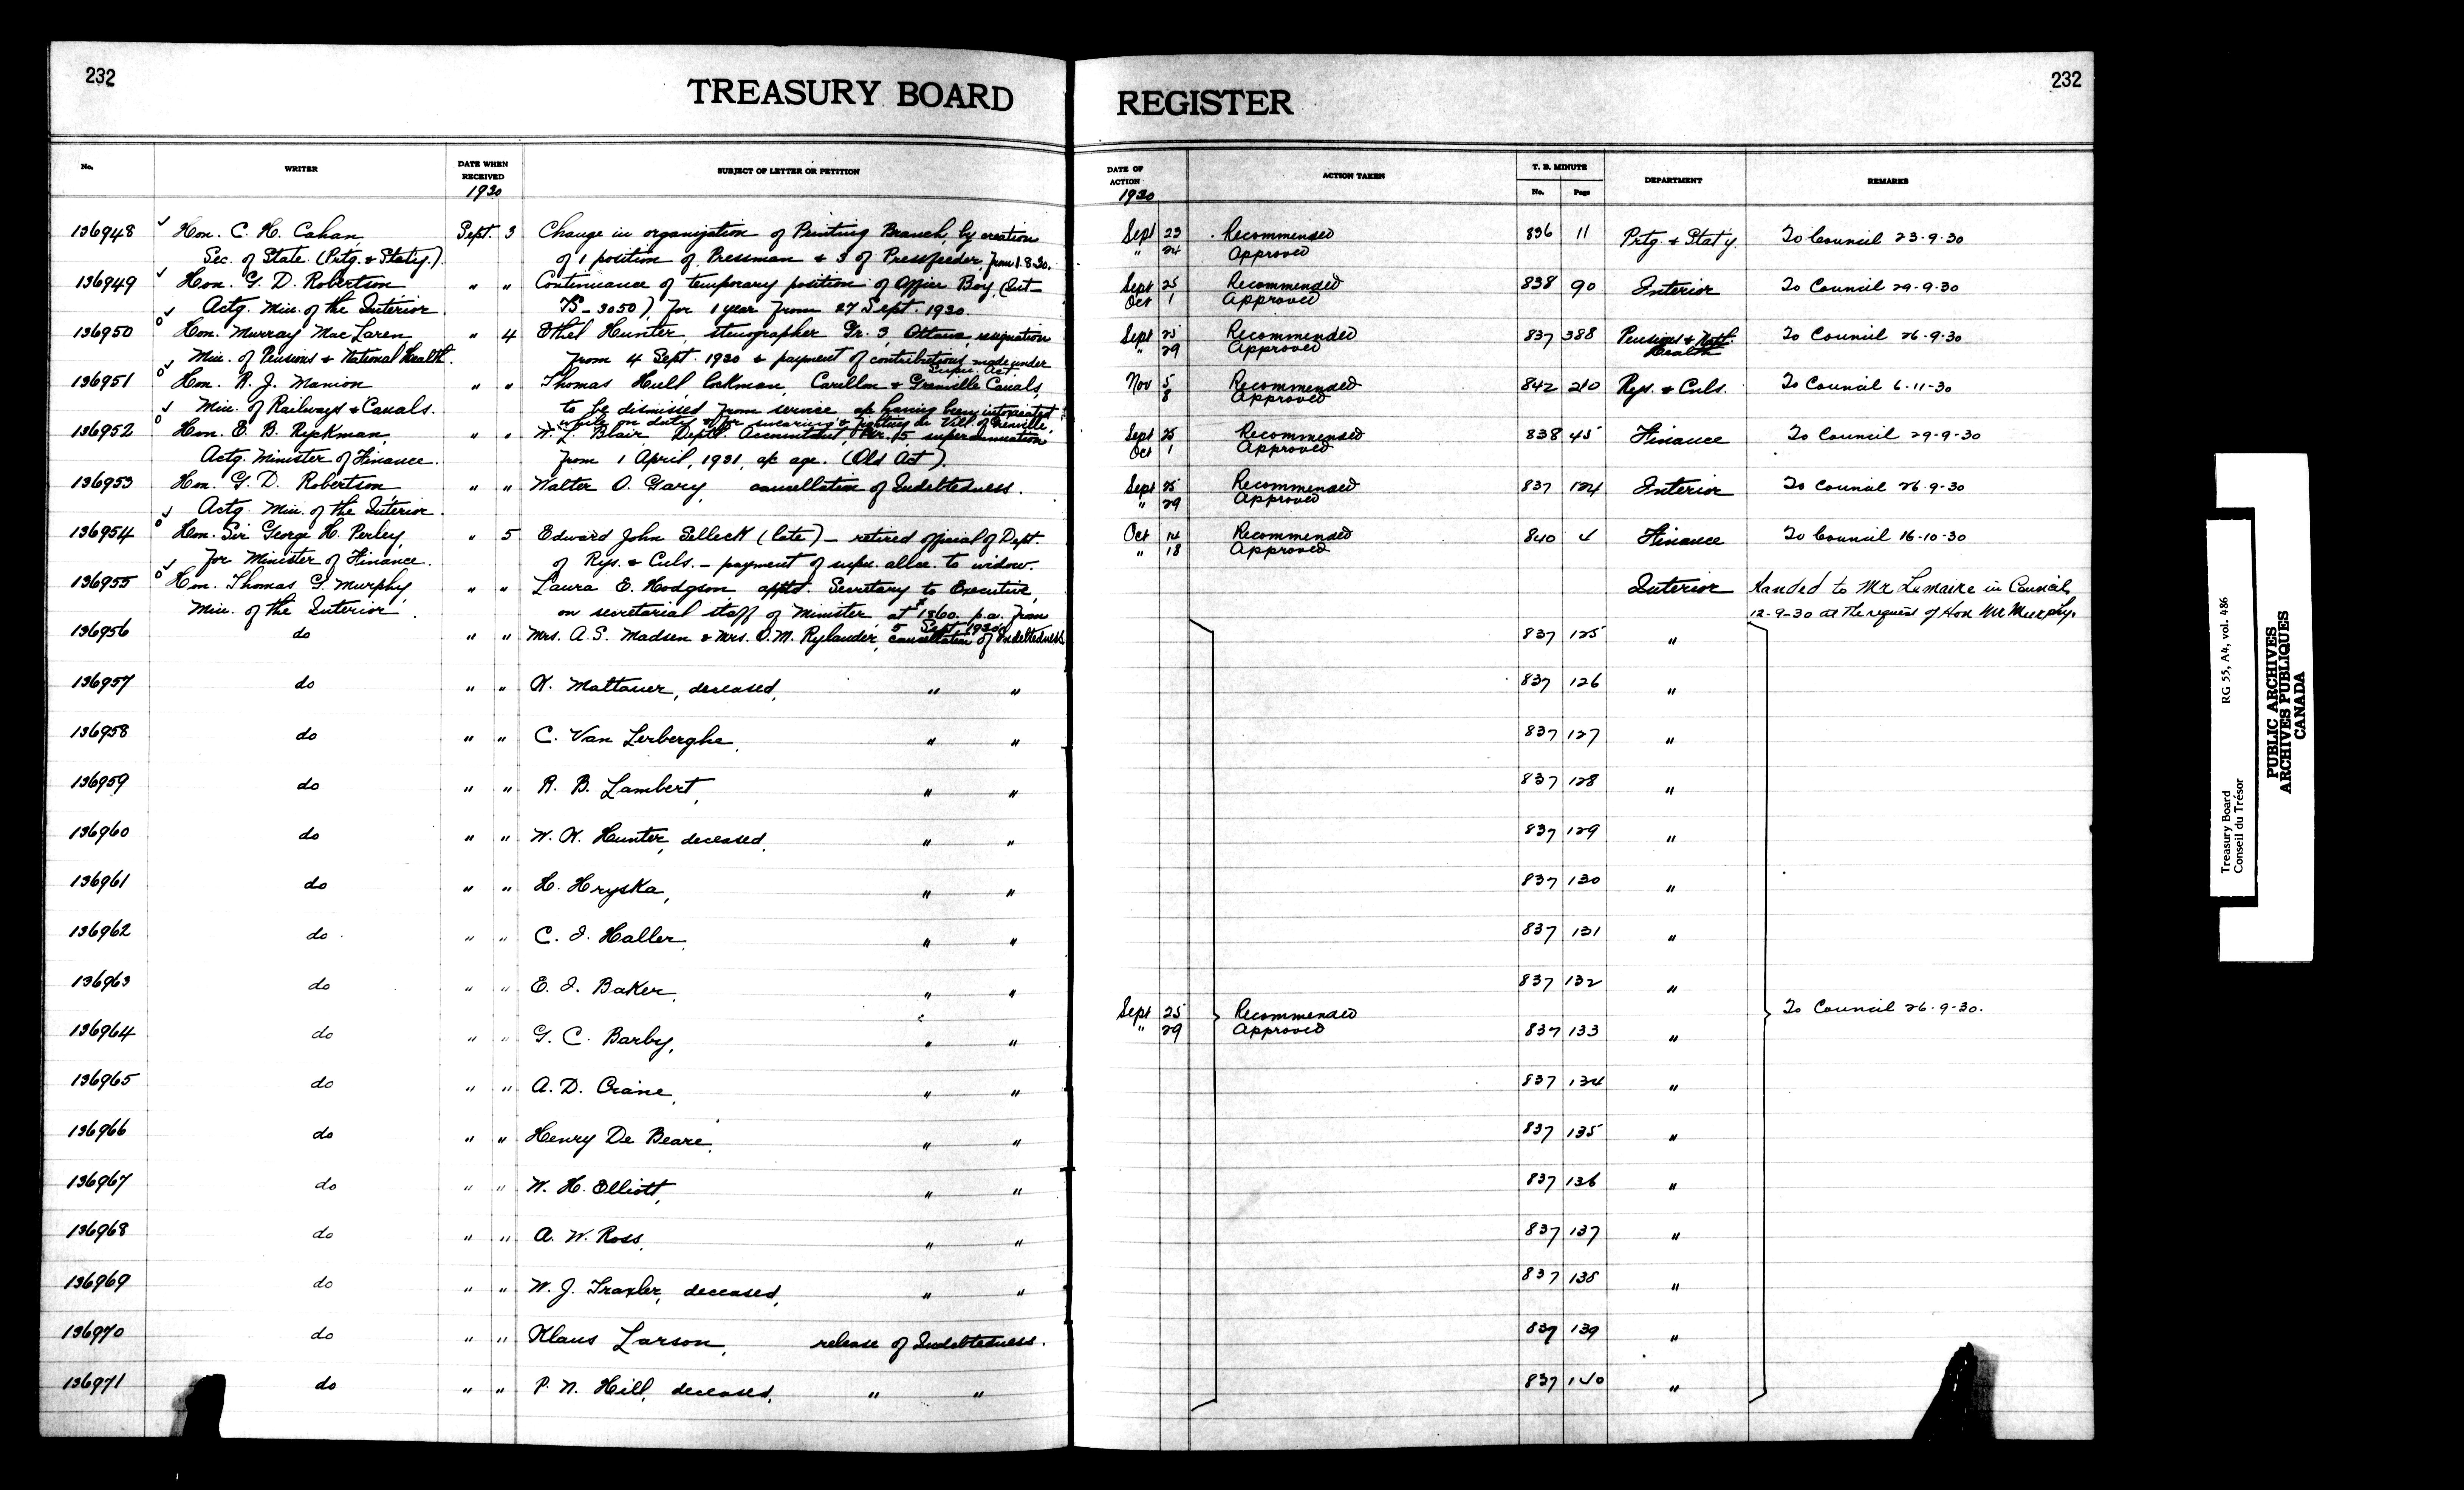 232
TREASURY BOARD
REGISTER
232
No.
WRITER
DATE WHEN RECEIVED
1930
SUBJECT OF LETTER OR PETITION
DATE OF ACTION
1930
ACTION TAKEN
T. B. MINUTE
No.
Page
DEPARTMENT
REMARKS
136948 Hon. C. H. Cahan, Sept. 3 Change in organization of Printing Branch, by creation Sept 23 Recommended 836 11 Prtg. & Stat'y. To Council 23-9-30
Sec. of State. (Prtg. & Stat'y.) of 1 position of Pressman & 3 of Pressfeeder, from 1.8.30. " 24 Approved
136949 Hon. G. D. Robertson " " Continuance of temporary position of Office Boy, (Int- Sept 25 Recommended 838 90 Interior To Council 29-9-30
Actg. Min. of the Interior. TS-3050), for 1 year from 27 Sept. 1930. Oct 1 Approved
136950 Hon. Murray MacLaren, " 4 Ethel Hunter, stenographer Gr. 3, Ottawa, resignation Sept 25 Recommended 837 388 Pensions & Natl. To Council 26-9-30
Min. of Pensions & National Health. from 4 Sept. 1930 & payment of contributions made under " 29 Approved Health
Supn. Act.
136951 Hon. R. J. Manion " " Thomas Hull, lockman, Carillon & Grenville Canals, Nov 5 Recommended 842 210 Rys. & Cnls. To Council 6-11-30
Min. of Railways & Canals. to be dismissed from service, a/c having been intoxicated 8 Approved
while on duty & for swearing & fighting in Vill. of Grenville.
136952 Hon. E. B. Ryckman, " " W. L. Blair, Deptl. Accountant, Gr. 5, superannuation Sept 25 Recommended 838 45 Finance To Council 29-9-30
Actg. Minister of Finance. from 1 April, 1931, a/c age. (Old Act). Oct 1 Approved
136953 Hon. G. D. Robertson " " Walter O. Gary, cancellation of Indebtedness. Sept 25 Recommended 837 124 Interior To Council 26-9-30
Actg. Min. of the Interior. " 29 Approved
136954 Hon. Sir George H. Perley, " 5 Edward John Selleck (late) – retired official of Dept. Oct 14 Recommended 840 4 Finance To Council 16-10-30
for Minister of Finance. of Rys. & Cnls. – payment of supn. allce. to widow. " 18 Approved
136955 Hon. Thomas G. Murphy, " " Laura E. Hodgson, apptd. Secretary to Executive, Interior Handed to Mr Lemaire in Council
Min. of the Interior. on secretarial staff of Minister, at $1860. p.a. from 12-9-30 at the request of Hon Mr Murphy.
5 Sept. 1930.
136956 do " " Mrs. A. S. Madsen & Mrs. O. M. Rylander, cancellation of Indebtedness 837 125 "
136957 do " " K. Mattauer, deceased, " " 837 126 "
136958 do " " C. Van Lerberghe, " " 837 127 "
136959 do " " R. B. Lambert, " " 837 128 "
136960 do " " W. K. Hunter, deceased, " " 837 129 "
136961 do " " H. Hryska, " " 837 130 "
136962 do " " C. J. Haller, " " 837 131 "
136963 do " " E. J. Baker, " " 837 132 "
Sept 25 Recommended To Council 26-9-30.
136964 do " " G. C. Barby, " " " 29 Approved 837 133 "
136965 do " " A. D. Crane, " " 837 134 "
136966 do " " Henry De Beare, " " 837 135 "
136967 do " " W. H. Elliott, " " 837 136 "
136968 do " " A. W. Ross, " " 837 137 "
136969 do " " W. J. Traxler, deceased, " " 837 138 "
136970 do " " Klaus Larson, release of Indebtedness. 837 139 "
136971 do " " P. N. Hill, deceased, " " 837 140 "
Treasury Board RG 55, A4, vol. 486
Conseil du Trésor
PUBLIC ARCHIVES
ARCHIVES PUBLIQUES
CANADA